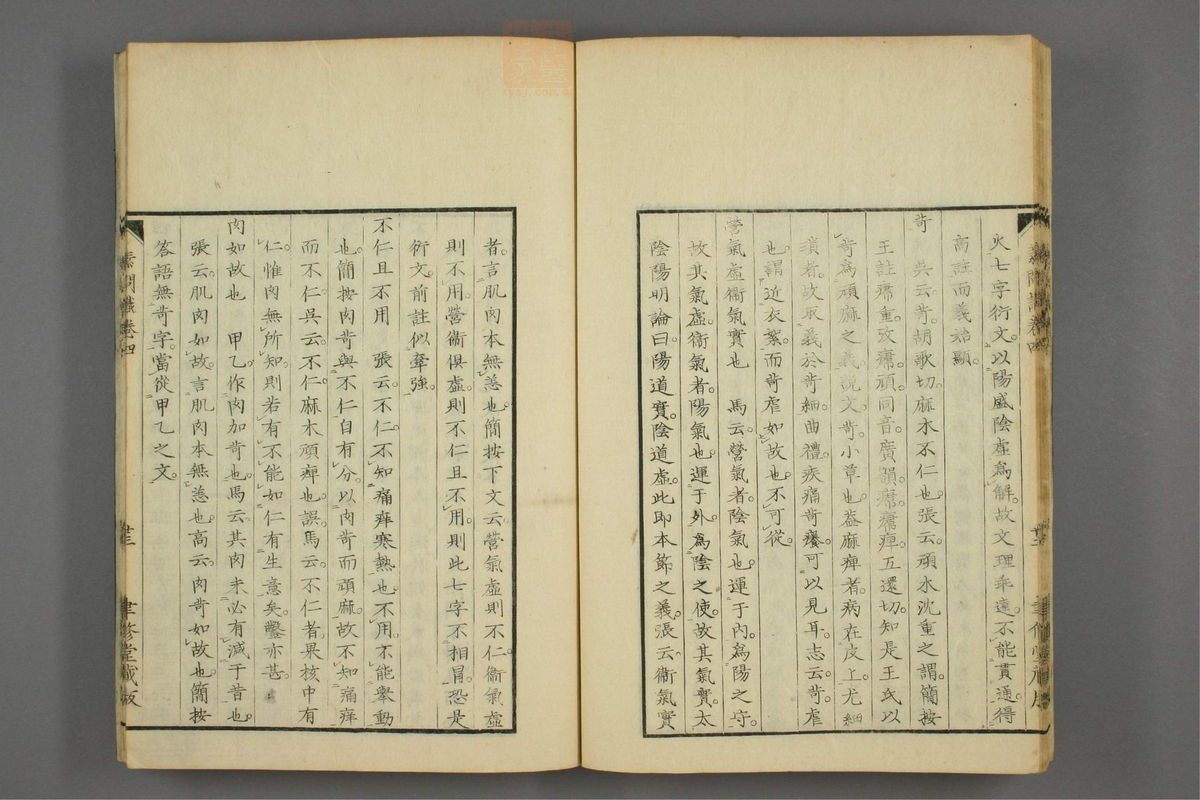 火七字衍文以陽盛陰虛爲解故文理乖違不能貫通得
高註而義始顯
苛　吳云苛胡歌切麻木不仁也張云頑木沈重之謂簡按
王註𤸷重攷𤸷頑同音廣韻𤸷痺五還切知是王氏以
苛爲頑麻之義說文苛小草也蓋麻痺者病在皮上尤細
瑣者故取義於苛細曲禮疾痛苛癢可以見耳志云苛虐
也謂近衣絮而苛虐如故也不可從
營氣虛衞氣實也　馬云營氣者陰氣也運于內爲陽之守
故其氣虛衞氣者陽氣也運于外爲陰之使故其氣實太
陰陽明論曰陽道實陰道虛此即本節之義張云衞氣實
者言肌肉本無恙也簡按下文云營氣虛則不仁衞氣虛
則不用營衞俱虛則不仁且不用則此七字不相冐恐是
衍文前註似牽強
不仁且不用　張云不仁不知痛痒寒熱也不用不能舉動
也簡按肉苛與不仁自有分以肉苛而頑麻故不知痛痒
而不仁吳云不仁麻木頑痺也誤馬云不仁者果核中有
仁惟肉無所知則若有不能如仁有生意矣鑿亦甚
肉如故也　甲乙作肉加苛也馬云其肉未必有減于昔也
張云肌肉如故言肌肉本無恙也高云肉苛如故也簡按
答語無苛字當從甲乙之文
素問識卷四
聿修堂藏版